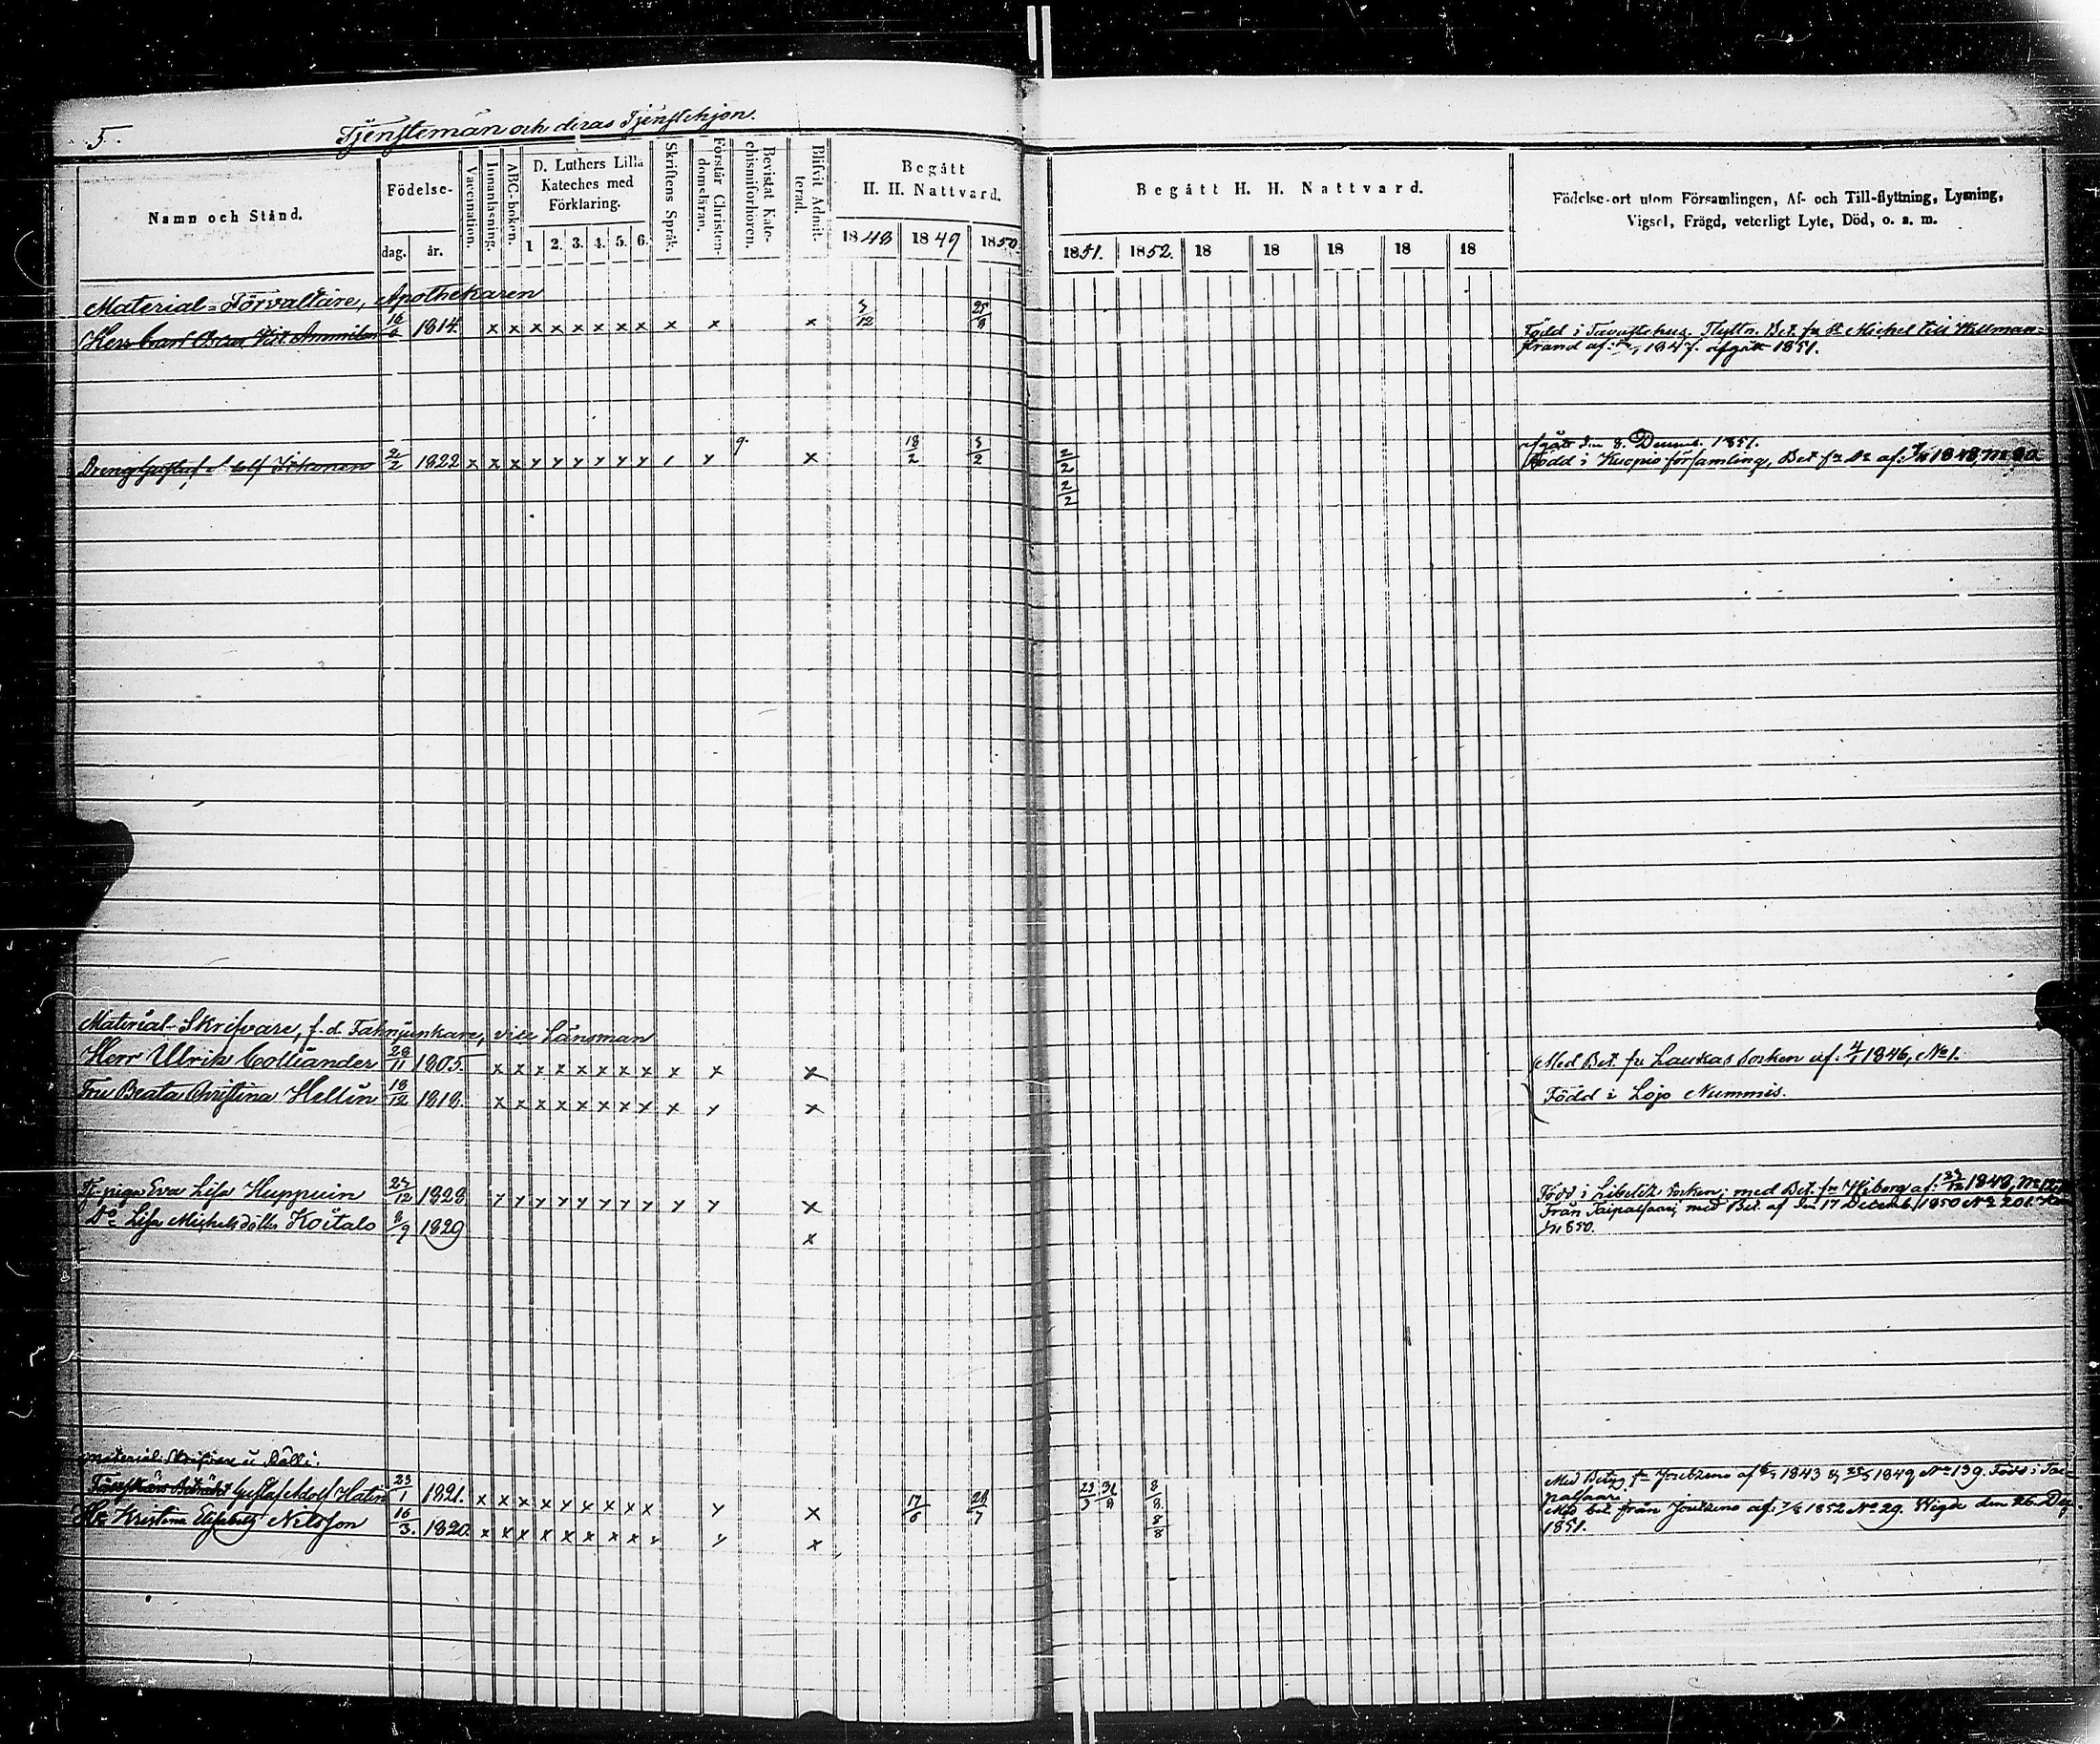 5.
Tjenstemän och deras Tjenstehjon.
Namn och Stånd.
Födelse-
dag. år.
Vaccination.
Innanläsning.
ABC-boken.
D. Luthers Lilla
Kateches med
Förklaring.
1 2. 3. 4. 5. 6.
Skriftens Språk.
Förstår Christen-
domsläran.
Bevistat Kate-
chismiförhören.
Blifvit Admit-
terad.
Begått
H. H. Nattvard.
1848 1849 1850
Begått H. H. Nattvard.
1851. 1852. 18 18 18 18 18
Födelse-ort utom Församlingen, Af- och Till-flyttning, Lysning,
Vigsel, Frägd, veterligt Lyte, Död, o. s. m.
Material-Förvaltare, Apothekaren
Herr Carl 16/6 1814. x x x x x x x x x x x 3/12 25/8
Född i Tavastehus. Flyttn. Bet. fr St Michel till Willman-
strand af 1847. afgått 1851.
afgått den 8. Decemb. 1851.
Dreng Gustaf Ihonen 2/2 1822 x x x y y y y y y / y 9. x 18/2 3/2 2/2
Född i Kuopio församling, Bet fr Do af 1848,
2/2
Material-Skrifvare, f. d. Fahnjunkare, vice Länsman
Herr Ulrik Colliander 28/11 1805. x x x x x x x x x x x
Med Bet. fr Laukas Socken af 4/1 1846, No 1.
Fru Beata Christina Hellin 18/12 1818. x x x x x x x x x y x
Född i Lojo Nummis.
Tj. piga Eva Lisa Huppuin 27/12 1828 y y y y y y y y y y x
Född i Libelits Socken; med Bet. fr Wiborg af 27/12 1848,
Do Lisa Michelsdotter Koitalo 8/9 1829 x
Från Taipalsaari med Bet. af den 17 Decemb. 1850 No 201.
1850.
material-Skrifvare
Gustaf Adolf Hatin 23/1 1821. x x x x y x x x x y x 17/6 28/7 23/3 31/8 8/8
Med Betyg fr Joutzeno af 1843 & 1849 No 139. Född i Tai-
palsaari
Hu Kristina Elisabeth Nilsson 16/3. 1820. x x x x x x x x x y x 8/8
Med bet. från Joutzeno af 1852 No 29. Wigde den 26. Dec.
1851.